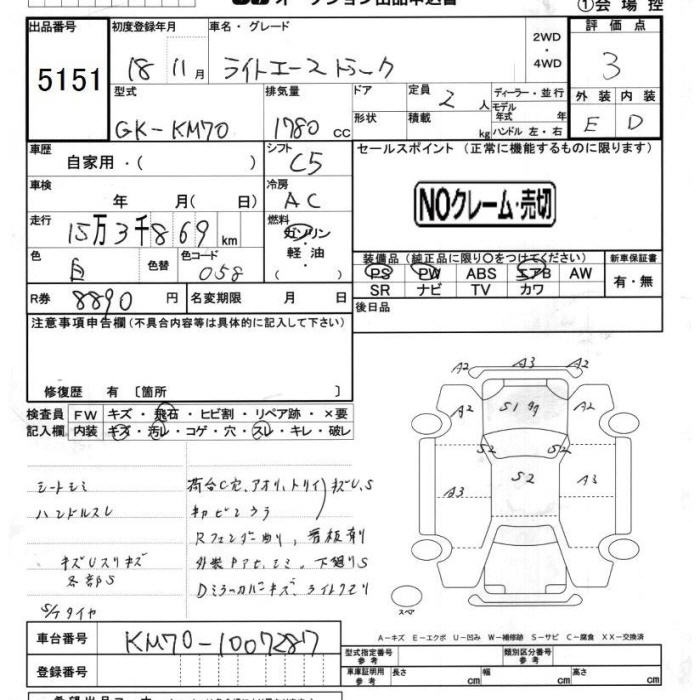 オークション出品申込書
①会場控
出品番号 初度登録年月 車名・グレード 2WD・4WD 評価点
5151 18 11月 ライトエーストラック 3
型式 排気量 ドア 定員 2人 ディーラー・並行 外装 内装
GK-KM70 1780cc 形状 積載 kg モデル年式 年 ハンドル 左・右 E D
車歴 シフト セールスポイント (正常に機能するものに限ります)
自家用・( ) C5
車検 冷房 NOクレーム・売切
年 月( 日) AC
走行 燃料
15万3千869km ガソリン
軽油
色 色替 色コード ( ) 装備品(純正品に限り○をつけてください) 新車保証書
白 058 PS PW ABS エアB AW 有・無
R券 8890円 名変期限 月 日 SR ナビ TV カワ
注意事項申告欄(不具合内容等は具体的に記入して下さい) 後日品
修復歴 有 [箇所 ]
検査員 FW キズ・飛石・ヒビ割・リペア跡・×要
記入欄 内装 キズ・汚レ・コゲ・穴・スレ・キレ・破レ
A2 A3 A2
A2 S1 A2
S2 S2
S2
A3 A3
シートシミ 荷台C穴、アオリ、トリイ キズU,S
ハンドルスレ
Rフェンダー
キズUスリキズ 下廻りS
各部S Dミラーカバーキズ、
S/Tタイヤ
スペア
A-キズ E-エクボ U-凹み W-補修跡 S-サビ C-腐食 XX-交換済
車台番号 KM70-1007287
型式指定番号 参考 類別区分番号 参考
登録番号 車庫証明用 参考 長さ cm 幅 cm 高さ cm